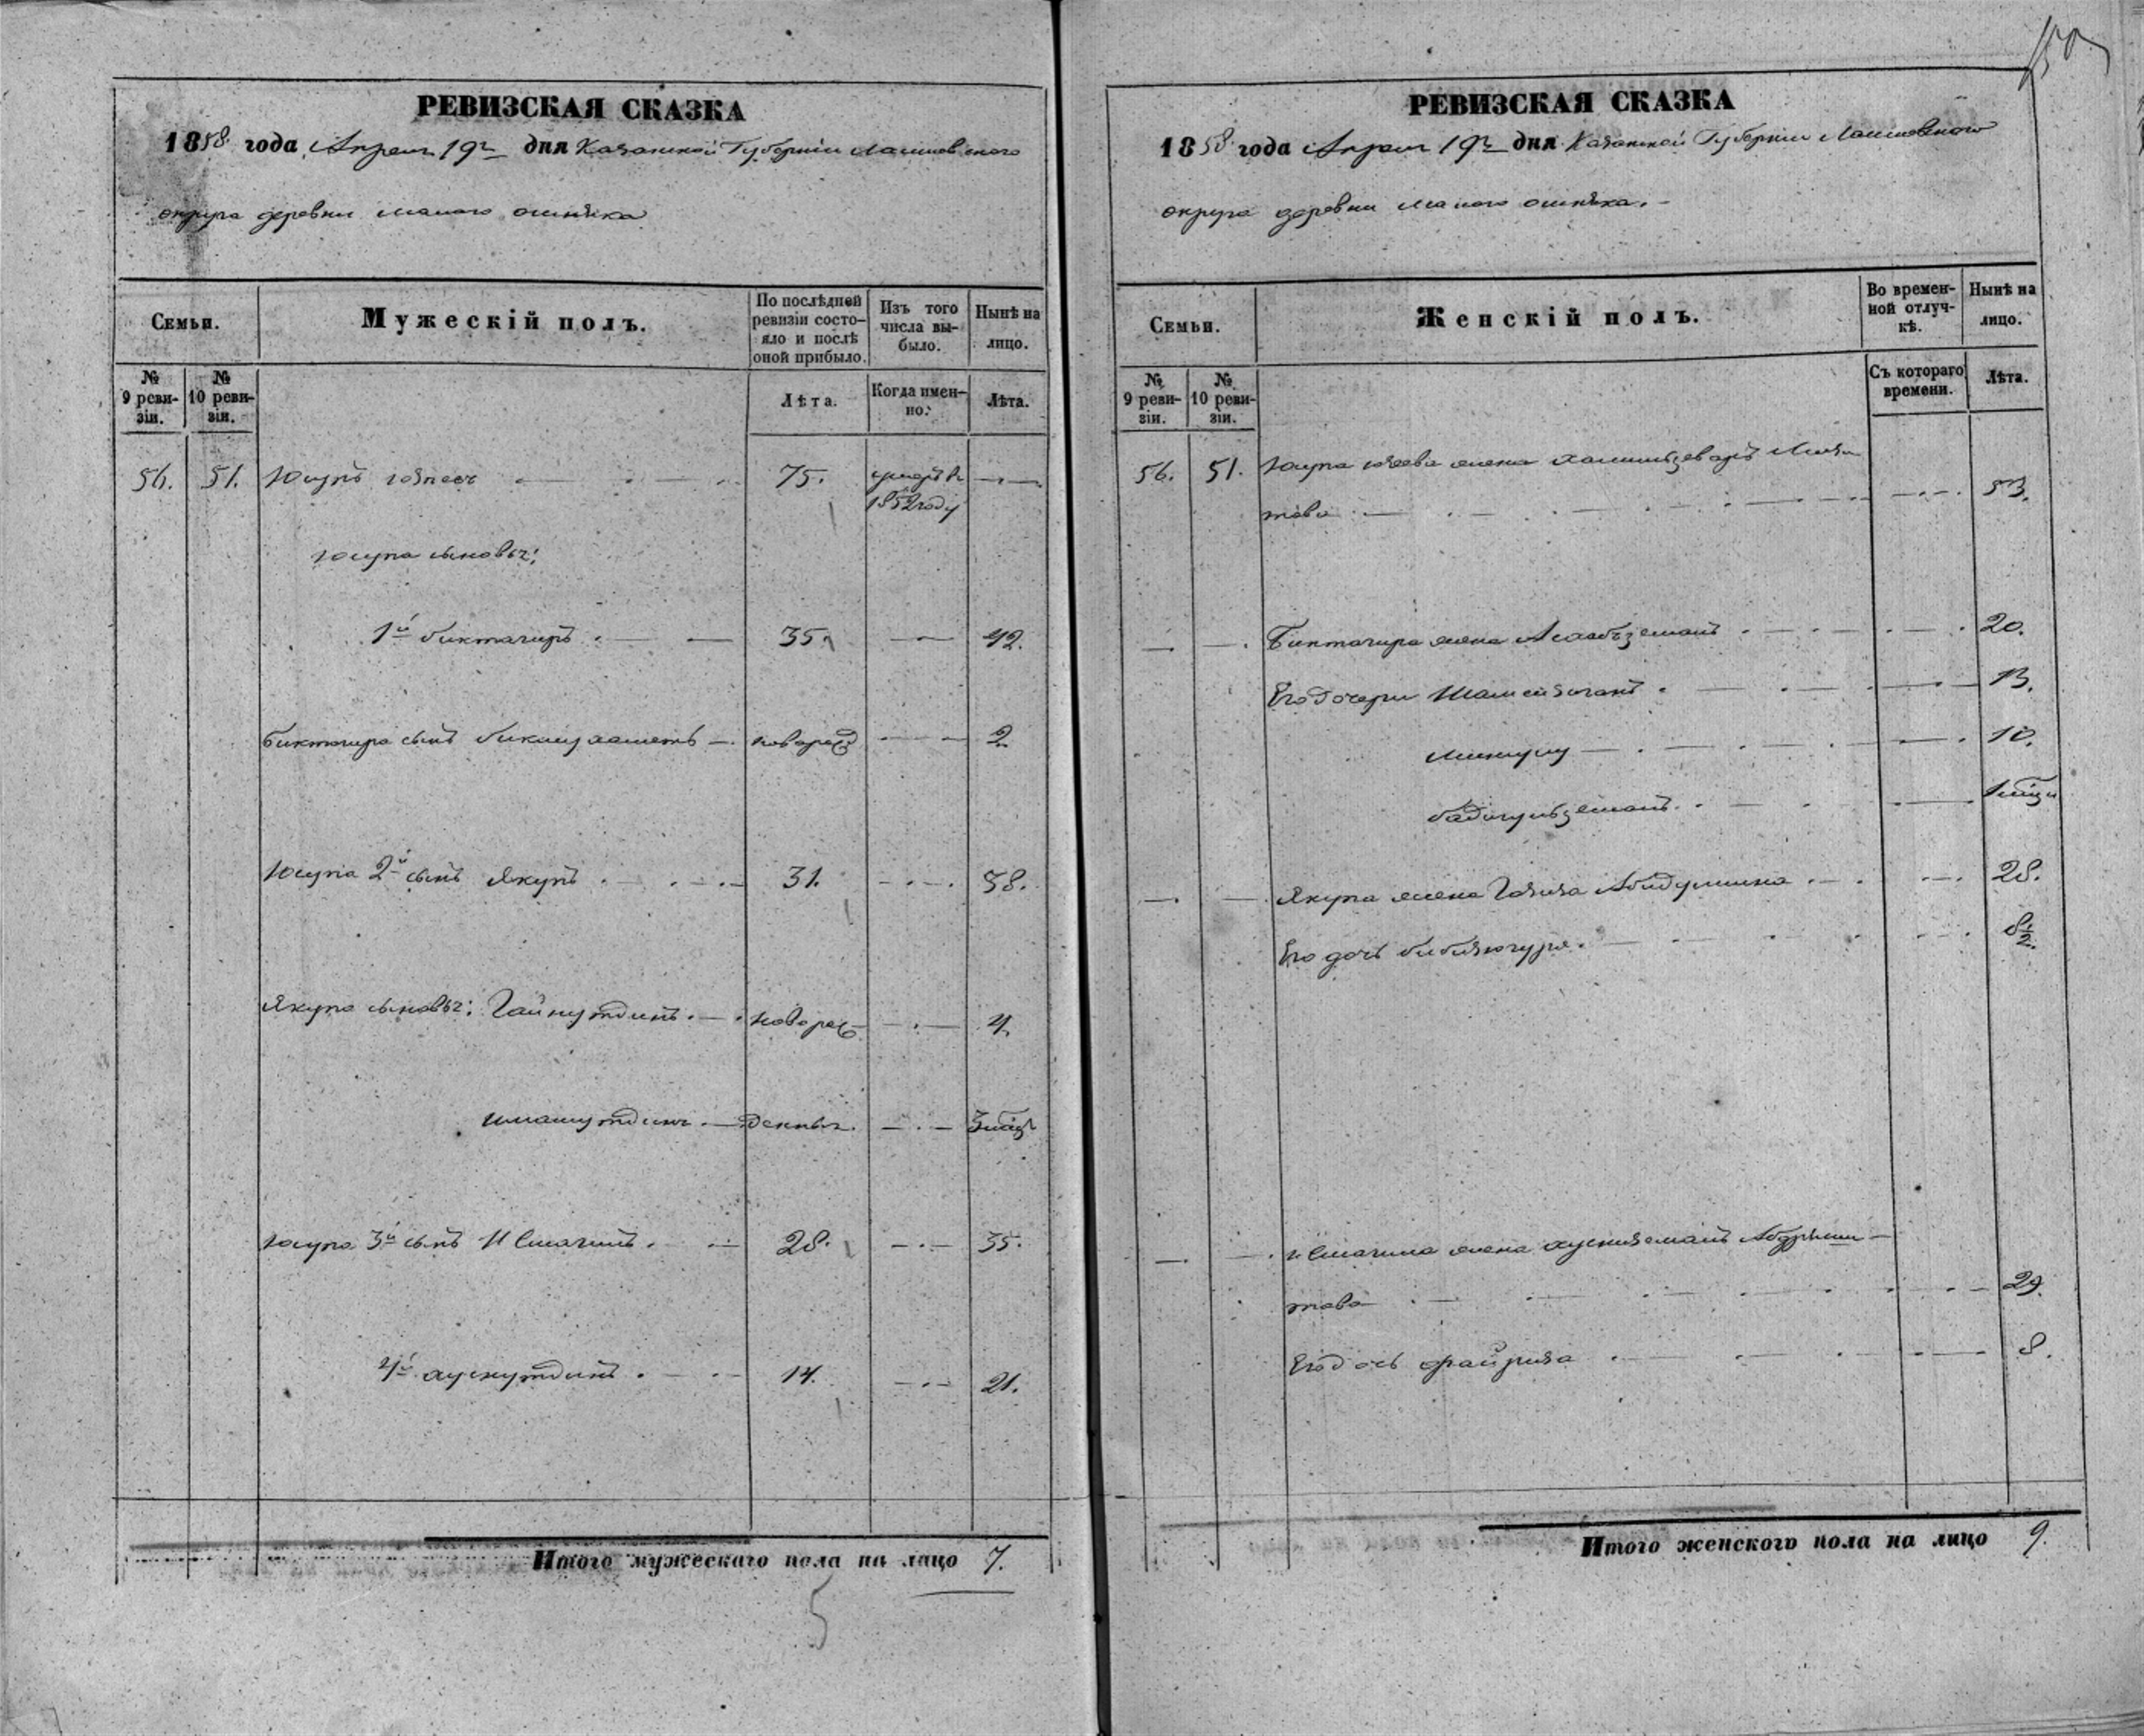 РЕВИЗСКАЯ СКАЗКА
1858 года Апреля 19го дня Казанской Губернии Лаишевского
округа деревни малого ошняка
Семьи. Мужескій полъ. По послѣдней ревизіи состояло и послѣ оной прибыло. Изъ того числа выбыло. Нынѣ на лицо.
№ 9 ревизіи. № 10 ревизіи. Лѣта. Когда именно. Лѣта.
56. 51. Юсупъ 75. умеръ въ
1852 году
Юсупа сыновья:
1й биктагиръ 35. 42.
биктагира сынъ бикмухаметъ новорожд 2.
Юсупа 2й сынъ Якупъ 31. 38.
Якупа сыновья: Гайнутдинъ новорож 4.
имамутдинъ денные. 3 мѣця
Юсупа 3й сынъ Исмагилъ 28. 35.
4й хуснутдинъ 14. 21.
Итого мужескаго пола на лицо 7.
5
50
РЕВИЗСКАЯ СКАЗКА
1858 года Апреля 19го дня Казанской Губернии Лаишевского
округа деревни малого ошняка.
Семьи. Женскій полъ. Во временной отлучкѣ. Нынѣ на лицо.
№ 9 ревизіи. № 10 ревизіи. Съ котораго времени. Лѣта.
56. 51. Юсупа жена
това 53.
Биктагира жена 20.
Его дочери 13.
10.
бадигульземалъ 1 мѣця
Якупа жена Газиза 28.
Его дочь 8 1/2.
Исмагила жена хусниземалъ
това 29.
Его дочь 8.
Итого женского пола на лицо 9.